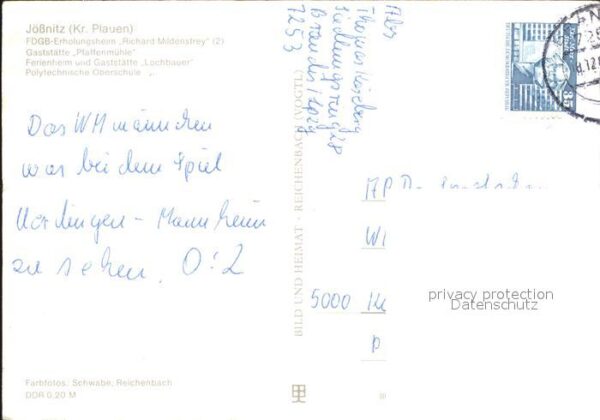 Jößnitz (Kr. Plauen)
FDGB-Erholungsheim „Richard Mildenstrey" (2)
Gaststätte „Pfaffenmühle"
Ferienheim und Gaststätte „Lochbauer"
Polytechnische Oberschule
Das WM männchen
war bei dem Spiel
Uerdingen - Mannheim
zu sehen. 0:2
Abs
Thomas
Siedlungsring 28
Brandis / Lpzg
7253
BILD UND HEIMAT · REICHENBACH (VOGTL)
5000
privacy protection
Datenschutz
Farbfotos: Schwabe, Reichenbach
DDR 0,20 M